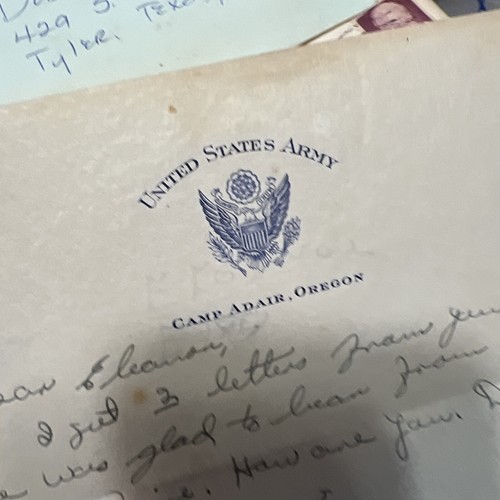 429 S. Texas
Tyler.
UNITED STATES ARMY
CAMP ADAIR, OREGON
ear Eleanor,
I got 3 letters from you
e was glad to hear from
How are you.